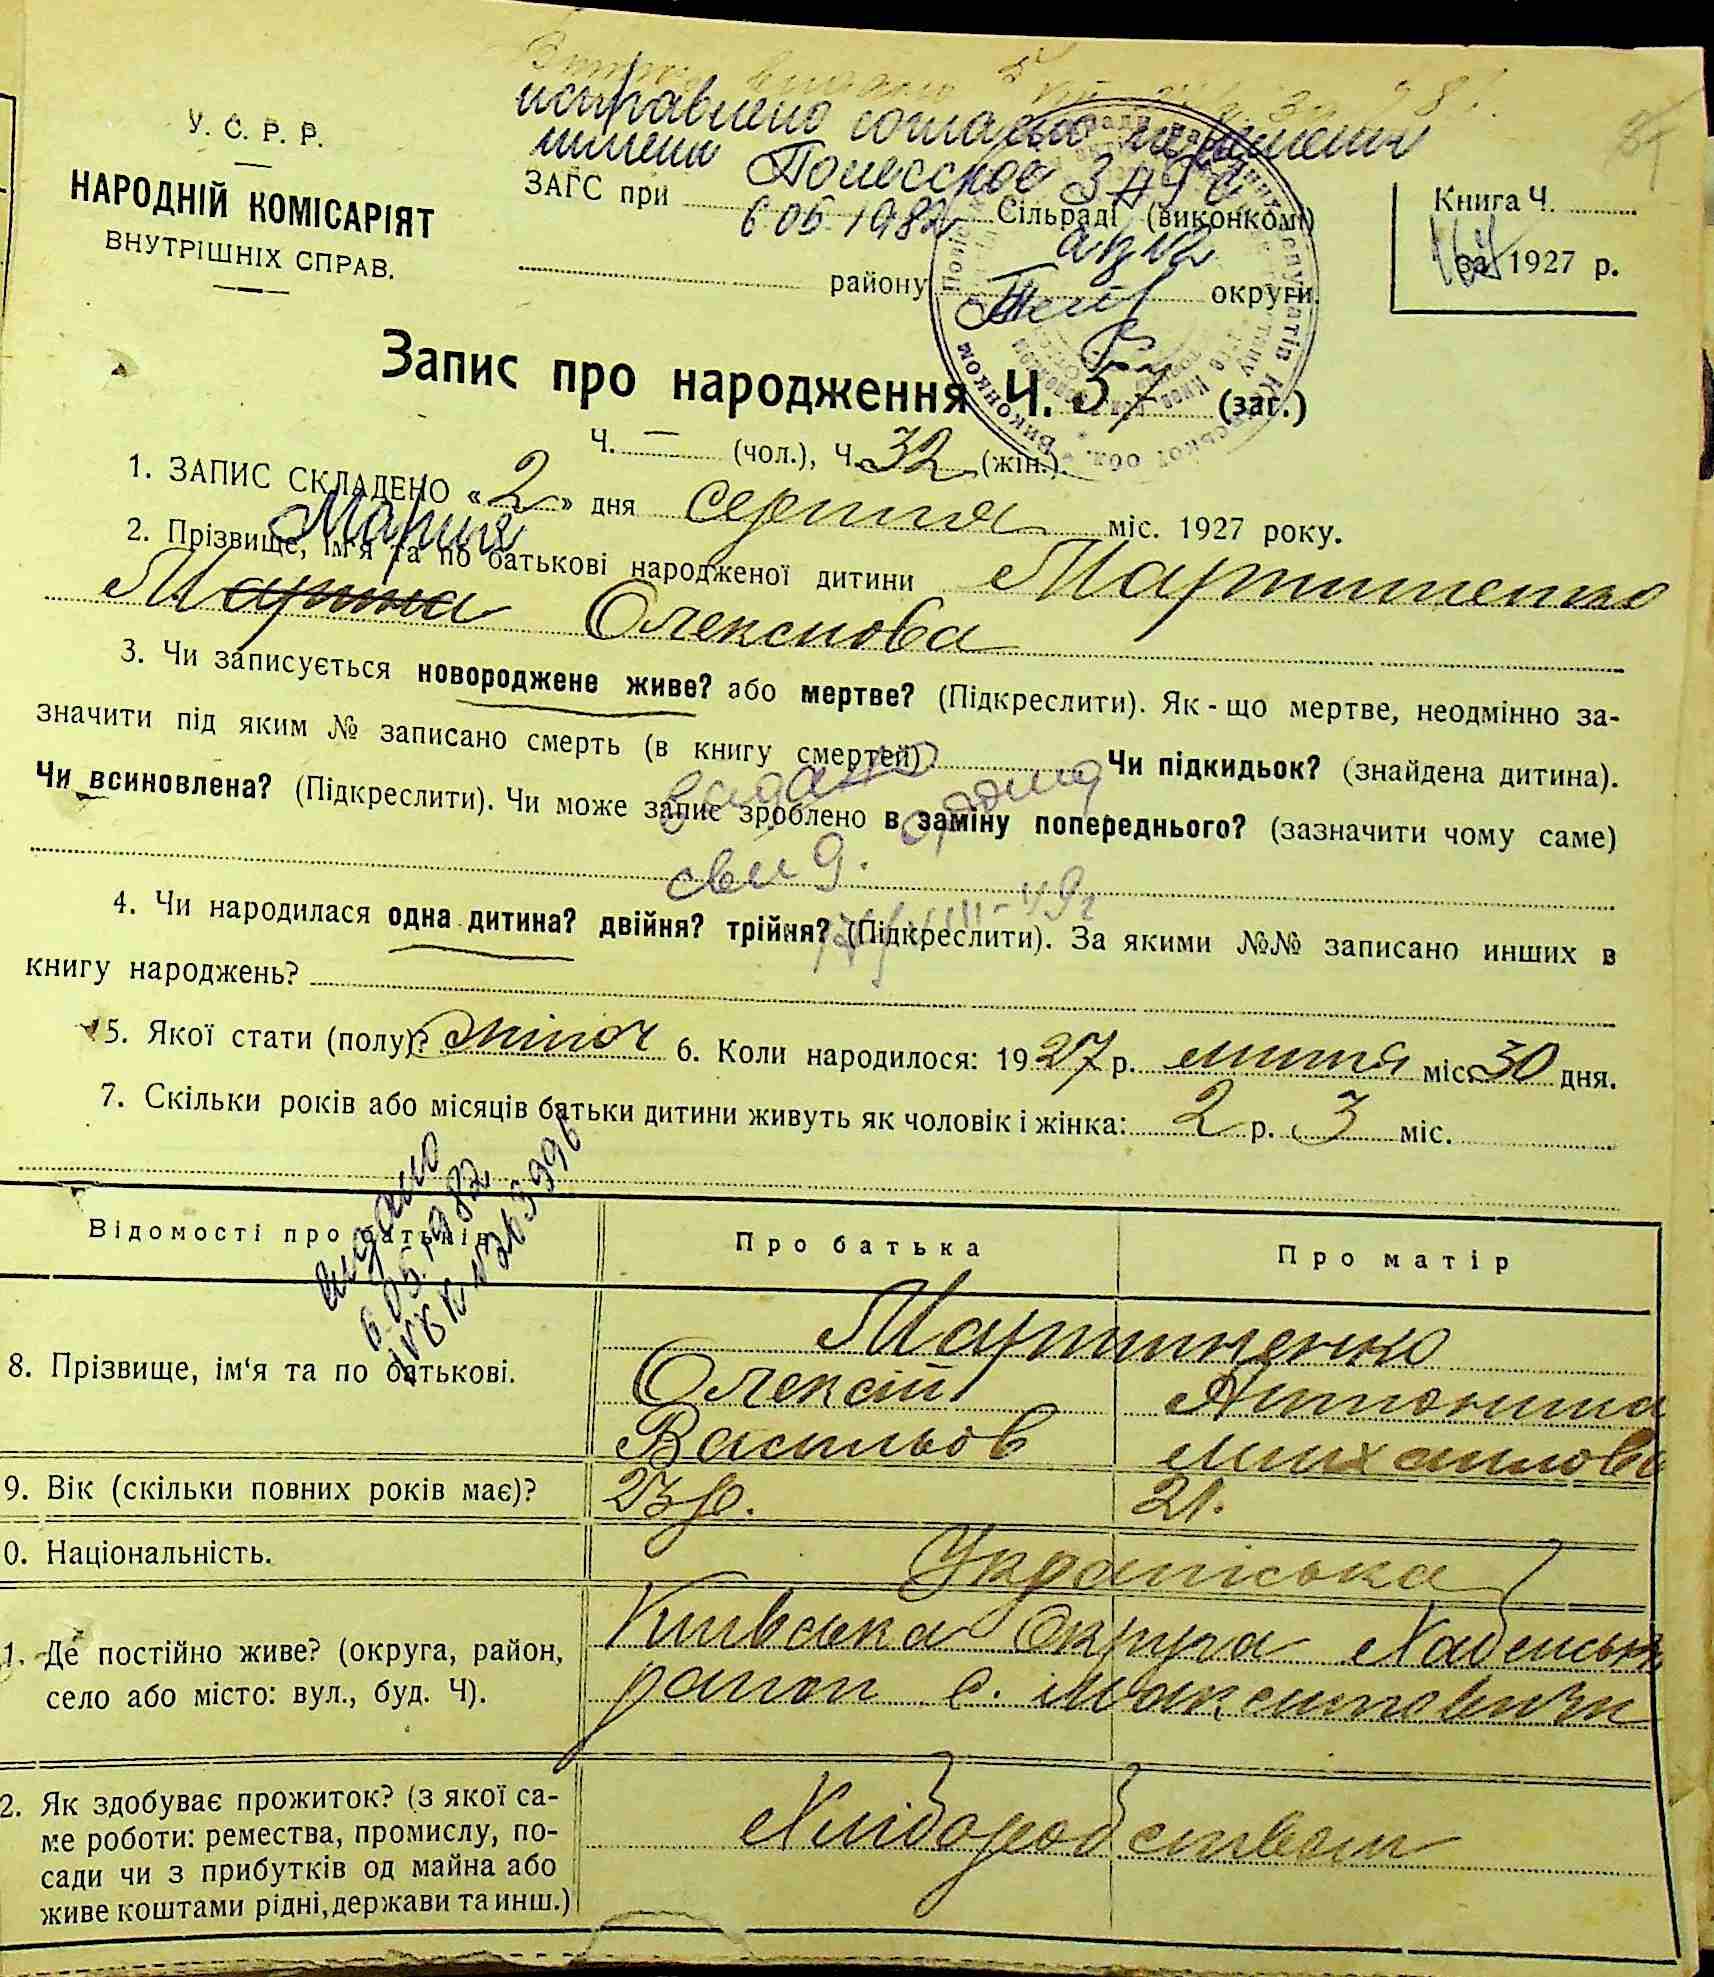 У. С. Р. Р.
НАРОДНІЙ КОМІСАРІЯТ
ВНУТРІШНІХ СПРАВ.
исправлено согласно
Полесское ЗАГС
ЗАГС при Сільраді (виконкомі)
6 05 1982
району округи
Книга Ч.
за 1927 р.
Запис про народження Ч. 57 (заг.)
Ч. — (чол.), Ч. 32 (жін.).
1. ЗАПИС СКЛАДЕНО «2» дня серпня міс. 1927 року.
Мария
2. Прізвище, ім'я та по батькові народженої дитини Мартиненко
Марина Олексиова
3. Чи записується новороджене живе? або мертве? (Підкреслити). Як-що мертве, неодмінно за-
значити під яким № записано смерть (в книгу смертей) Чи підкидьок? (знайдена дитина).
Чи всиновлена? (Підкреслити). Чи може запис зроблено в заміну попереднього? (зазначити чому саме)
свид.
4. Чи народилася одна дитина? двійня? трійня? (Підкреслити). За якими №№ записано инших в
книгу народжень?
5. Якої стати (полу)? жіноч 6. Коли народилося: 1927 р. липня міс. 30 дня.
7. Скільки років або місяців батьки дитини живуть як чоловік і жінка: 2 р. 3 міс.
выдано
6.05.1982
Відомості про батьків Про батька Про матір
Мартиненко
8. Прізвище, ім'я та по батькові. Олексій Антонина
Васильов Михайлова
9. Вік (скільки повних років має)? 23 р. 21.
0. Національність. Українська
1. Де постійно живе? (округа, район, Київська Округа Хабенськ
село або місто: вул., буд. Ч). район с. Максимовичи
2. Як здобуває прожиток? (з якої са-
ме роботи: ремества, промислу, по- Хліборобством
сади чи з прибутків од майна або
живе коштами рідні, держави та инш.)